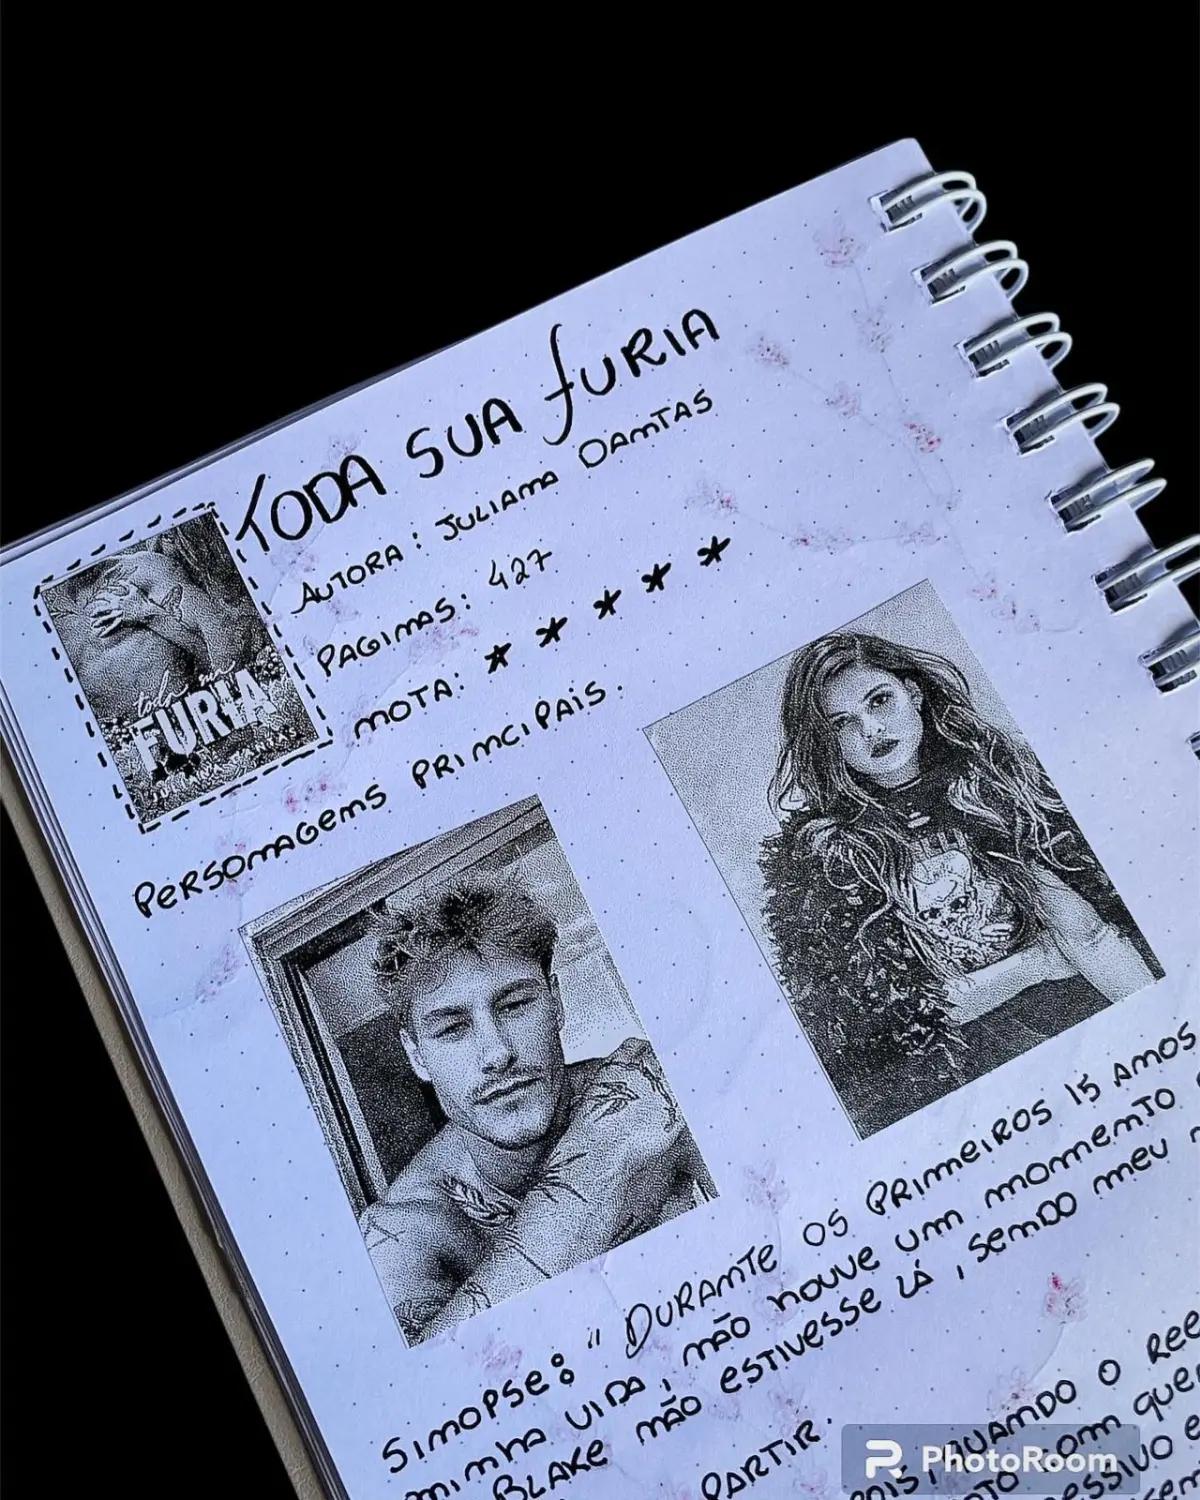 TODA SUA FURIA
AUTORA: JULIANA DANTAS
PAGINAS: 427
NOTA: * * * * *
FURIA
PERSONAGENS PRINCIPAIS:
SINOPSE: "DURANTE OS PRIMEIROS 15 ANOS
MINHA VIDA, NÃO HOUVE UM MOMENTO
BLAKE NÃO ESTIVESSE LÁ, SENDO MEU
PARTIR.
QUANDO O REE
COM QUE
ESSIVO E
PhotoRoom